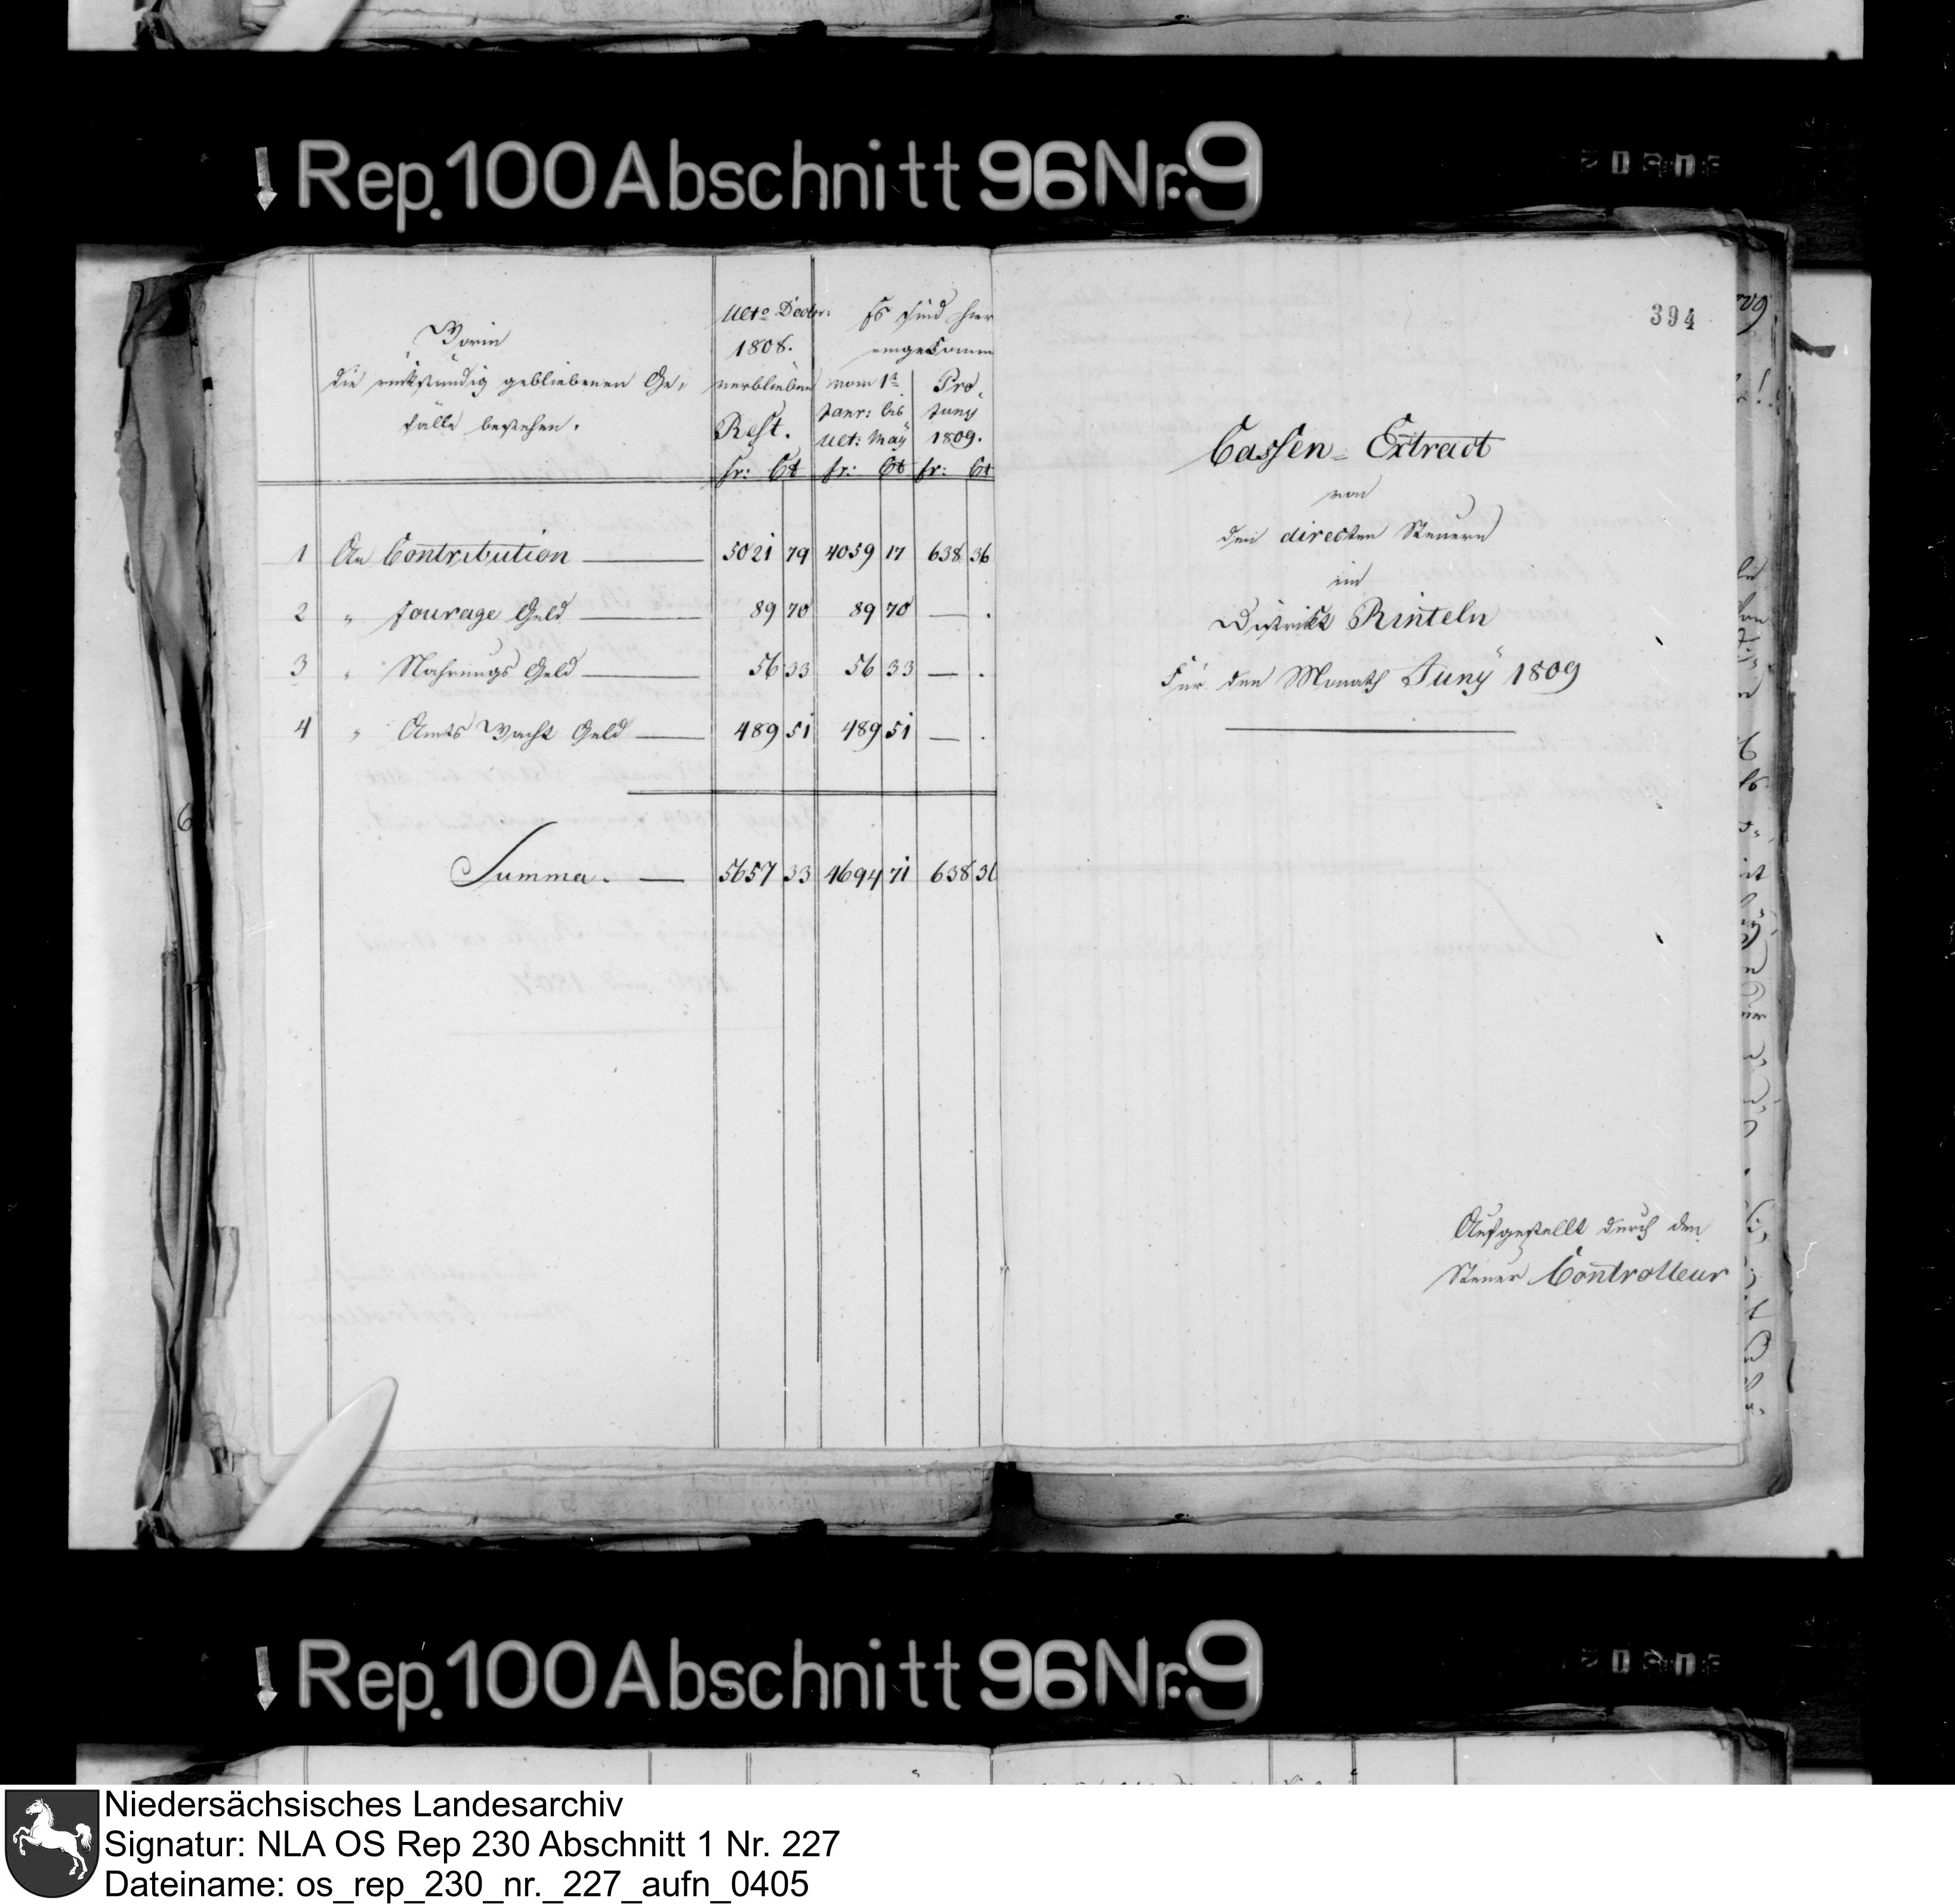 Rep. 100 Abschnitt 96 Nr. 9
Worin
die rückständig gebliebenen Ge,
fälle bestehen.
Ulto Decbr:
1808.
verblieben
Rest.
fr: Ct
Es sind hier
eingekomm
vom 1t
Janr: bis
Ult: Maÿ
fr: Ct
Pro
Junÿ
1809.
fr: Ct
1 An Contribution 5021 79 4059 17 638 36
2 " fourage Geld 89 70 89 70 — .
3 " Nahrungs Geld 56 33 56 33 — .
4 " Amts Wacht Geld 489 51 489 51 — .
Summa. 5657 33 4694 71 638 36
394
Cassen = Extract
von
den directen Steuern
im
District Rinteln
Für den Monath Junÿ 1809
Aufgestellt durch den
Steuer Controlleur
Rep. 100 Abschnitt 96 Nr. 9
Niedersächsisches Landesarchiv
Signatur: NLA OS Rep 230 Abschnitt 1 Nr. 227
Dateiname: os_rep_230_nr._227_aufn_0405